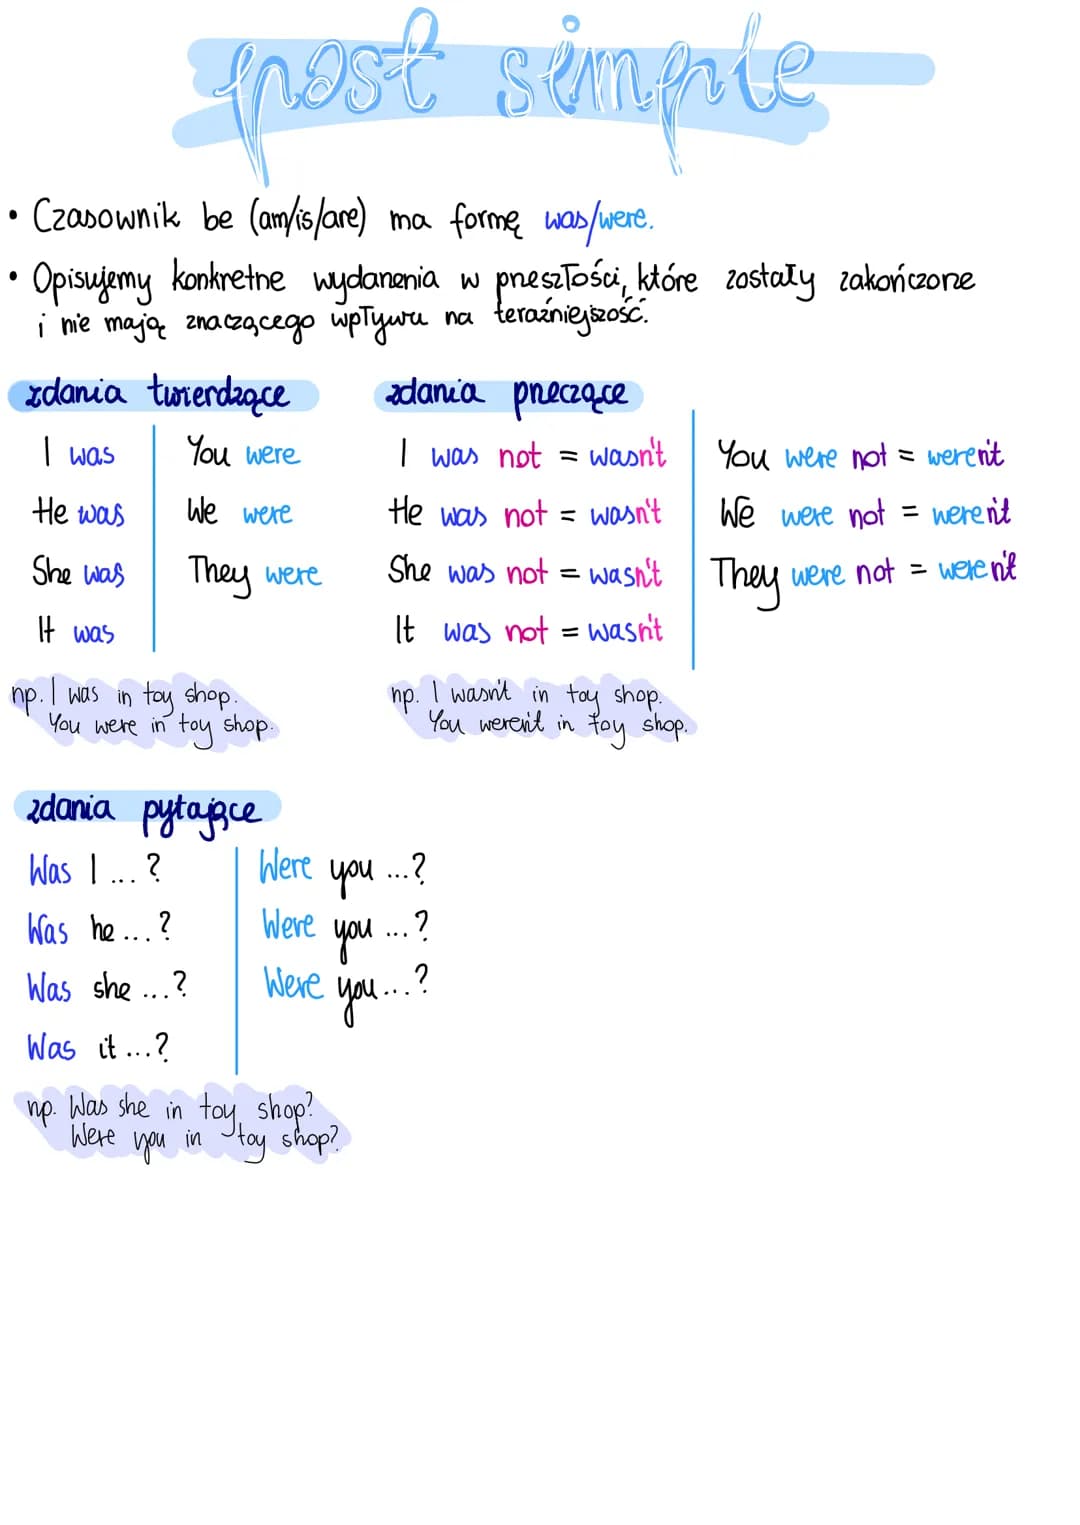 past simple
• Czasownik be (am/is/are) ma formę was/were.
• Opisujemy konkretne wydarzenia w przeszłości, które zostały zakończone
i nie mają znaczącego wpływu na teraźniejszość.
zdania twierdzące
I was You were
He was We were
She was They were
It was
np. I was in toy shop.
You were in toy shop.
zdania przeczące
I was not = wasn't You were not = weren't
He was not = wasn't We were not = weren't
She was not = wasn't They were not = weren't
It was not = wasn't
np. I wasn't in toy shop.
You weren't in toy shop.
zdania pytające
Was I ...? Were you ...?
Was he ...? Were you ...?
Was she ...? Were you ...?
Was it ...?
np. Was she in toy shop?
Were you in toy shop?